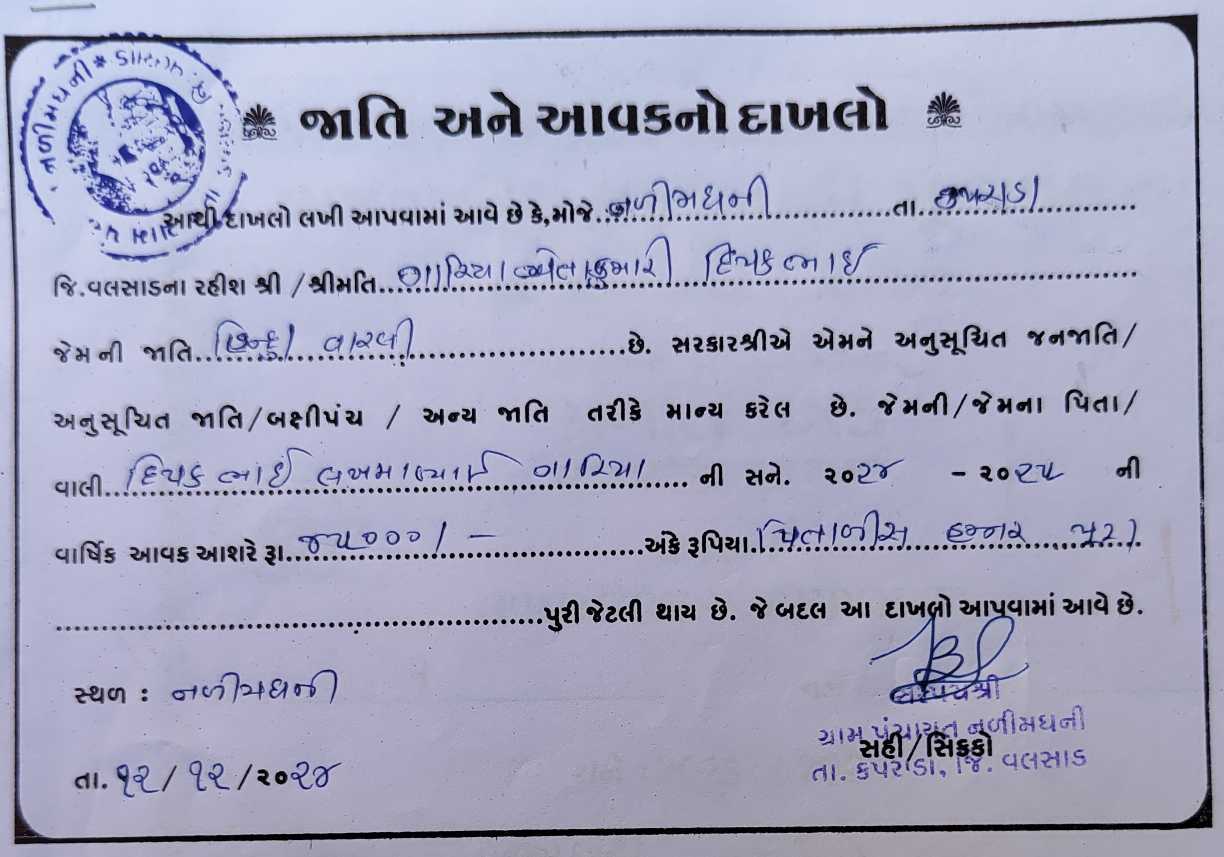 જાતિ અને આવકનો દાખલો
આથી દાખલો લખી આપવામાં આવે છે કે, મોજે. નળીમધની તા. કપરાડા
જિ.વલસાડના રહીશ શ્રી / શ્રીમતિ. ગારિયા શ્વેતાકુમારી દિપકભાઈ
જેમની જાતિ. હિન્દુ વારલી છે. સરકારશ્રીએ એમને અનુસૂચિત જનજાતિ/
અનુસૂચિત જાતિ/બક્ષીપંચ / અન્ય જાતિ તરીકે માન્ય કરેલ છે. જેમની/જેમના પિતા/
વાલી. દિપકભાઈ લખમાભાઈ ગારિયા ની સને. ૨૦૨૪ - ૨૦૨૫ ની
વાર્ષિક આવક આશરે રૂા. ૪૫૦૦૦/- અંકે રૂપિયા. પિતાળીસ હજાર પુરા
પુરી જેટલી થાય છે. જે બદલ આ દાખલો આપવામાં આવે છે.
સ્થળ : નળીમધની
સરપંચશ્રી
ગ્રામ પંચાયત નળીમધની
સહી/સિક્કો
તા. કપરાડા, જિ. વલસાડ
તા. ૧૨/૧૨/૨૦૨૪